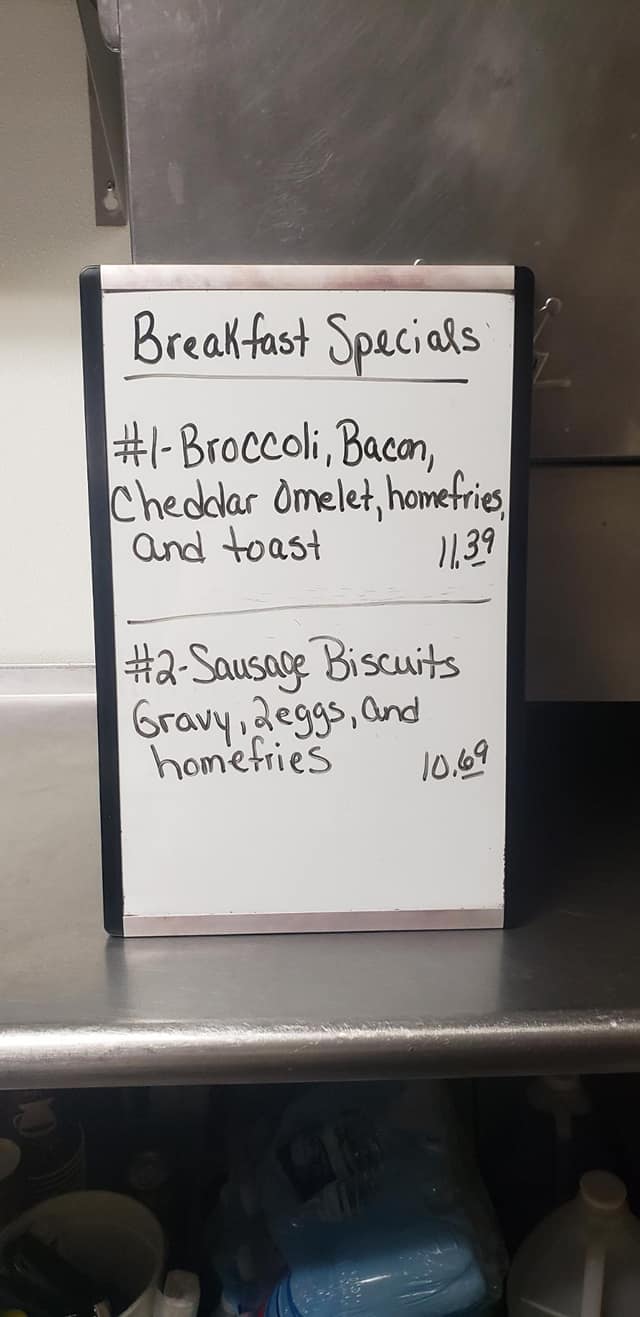 Breakfast Specials
#1-Broccoli, Bacon,
Cheddar Omelet, homefries,
and toast 11.39
#2-Sausage Biscuits
Gravy, 2eggs, and
homefries 10.69